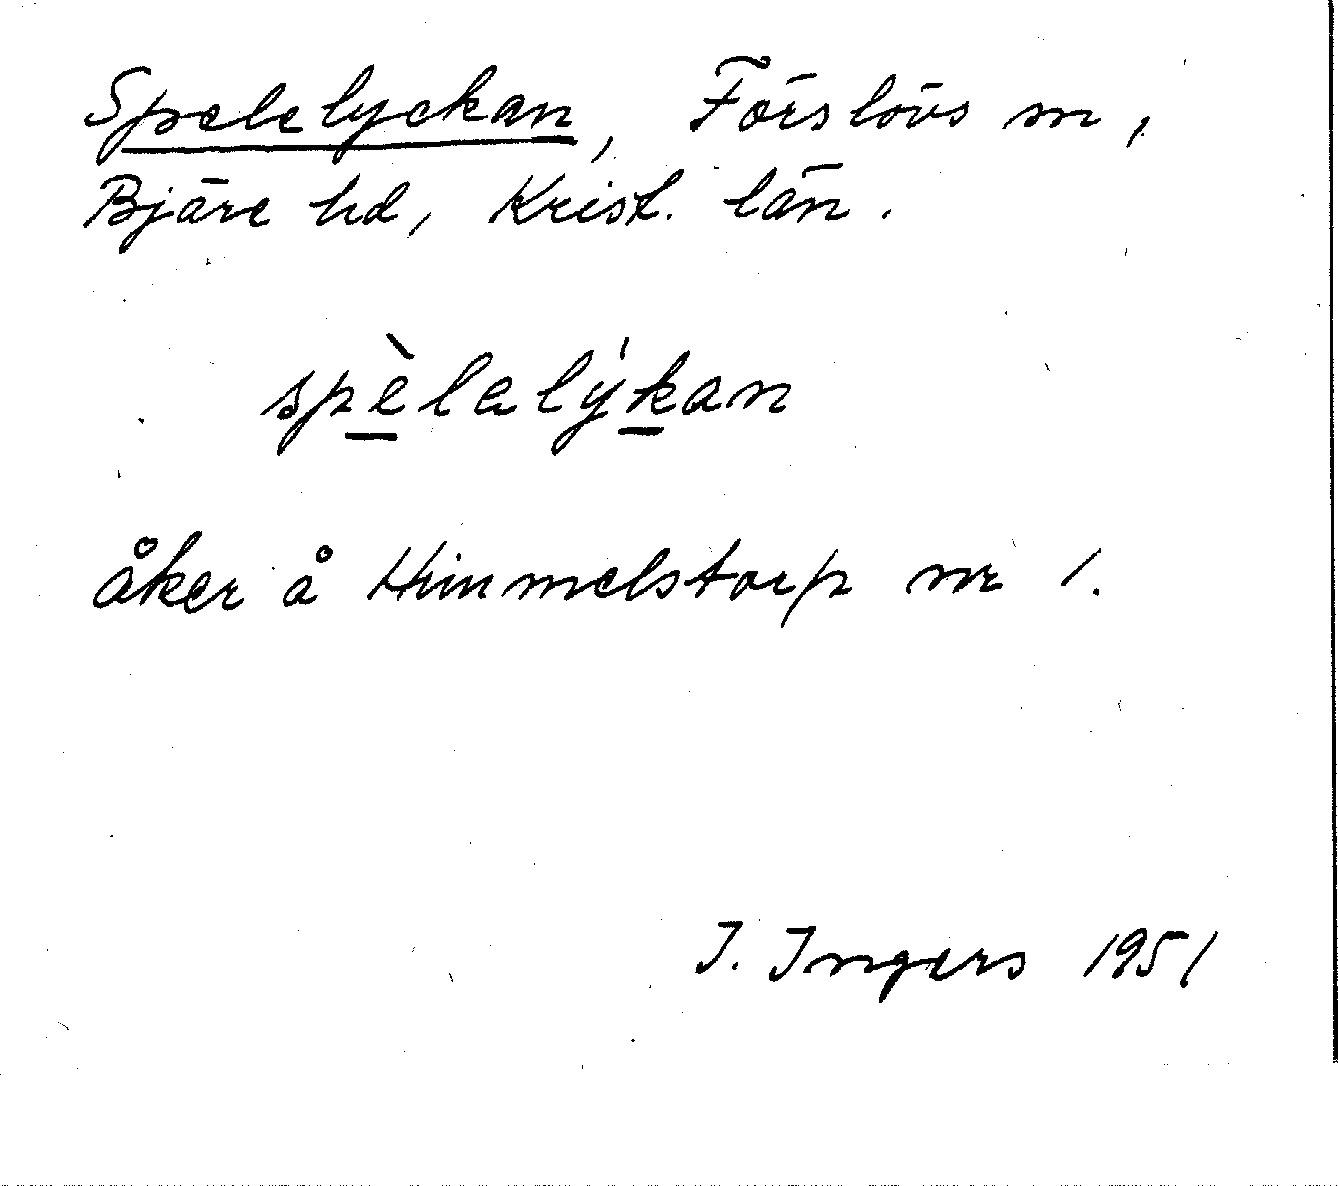 Spelelyckan, Förslövs sn,
Bjäre hd, Krist. län.
spèlalýkan
åker å Himmelstorp nr 1.
I. Ingers 1951